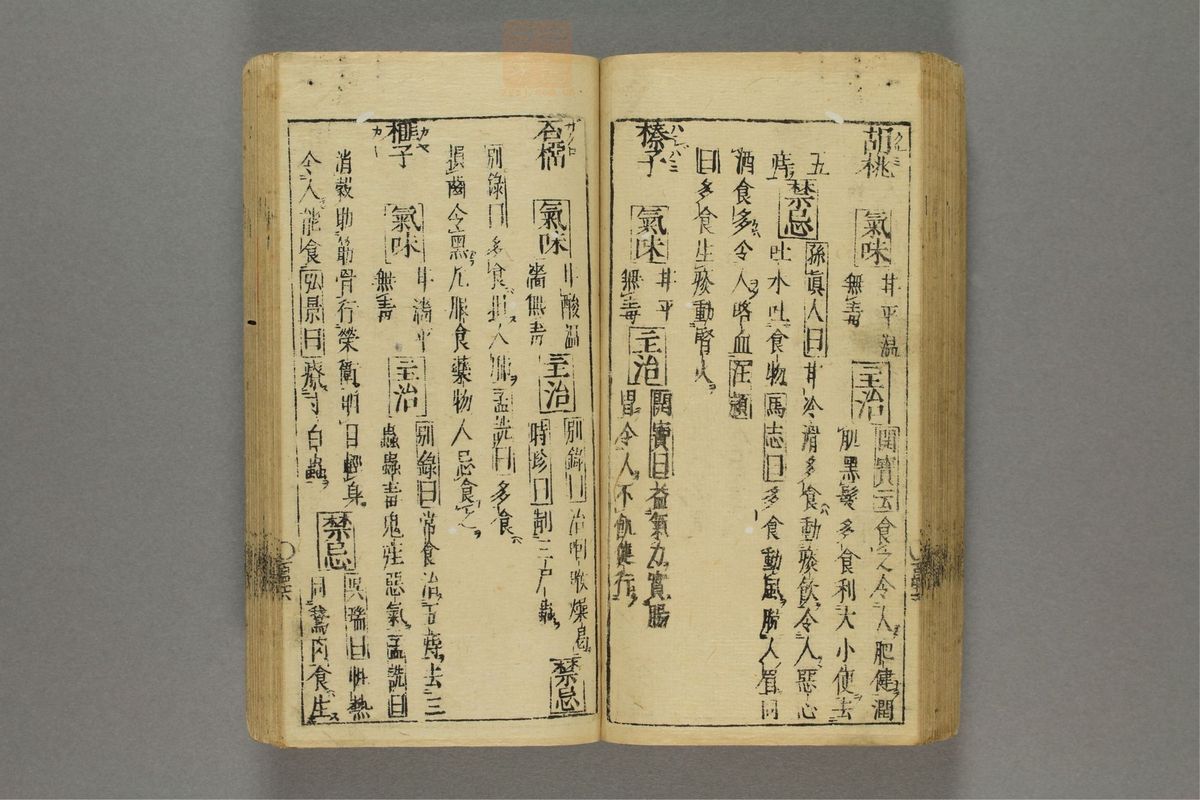 胡桃 氣味 甘平温 無毒 主治 開寶云食之令人肥健潤
肌黑髮多食利大小便去
五
痔 禁忌 孫眞人曰甘冷滑多食動痰飲令人惡心
吐水吐食物 馬志曰多食動風脫人眉同
酒食多令人咯血 汪頴
曰多食生痰動腎火
榛子 ハシバミ 氣味 甘平 無毒 主治 開寶曰益氣力實腸
胃令人不飢健行
石榴 ザクロ 氣味 甘酸温 濇無毒 主治 別錄曰治咽喉燥渴
時珍曰制三尸蟲 禁忌
別錄曰多食損人肺 孟詵曰多食
損齒令黑凡服食藥物人忌食之
榧子 カヤ 氣味 甘濇平 無毒 主治 別錄曰常食治五痔去三
蟲蟲毒鬼疰惡氣 孟詵曰
消穀助筋骨行榮衞明目輕身
令人能食 弘景曰療寸白蟲 禁忌 吳瑞曰性熱
同鵞肉食生